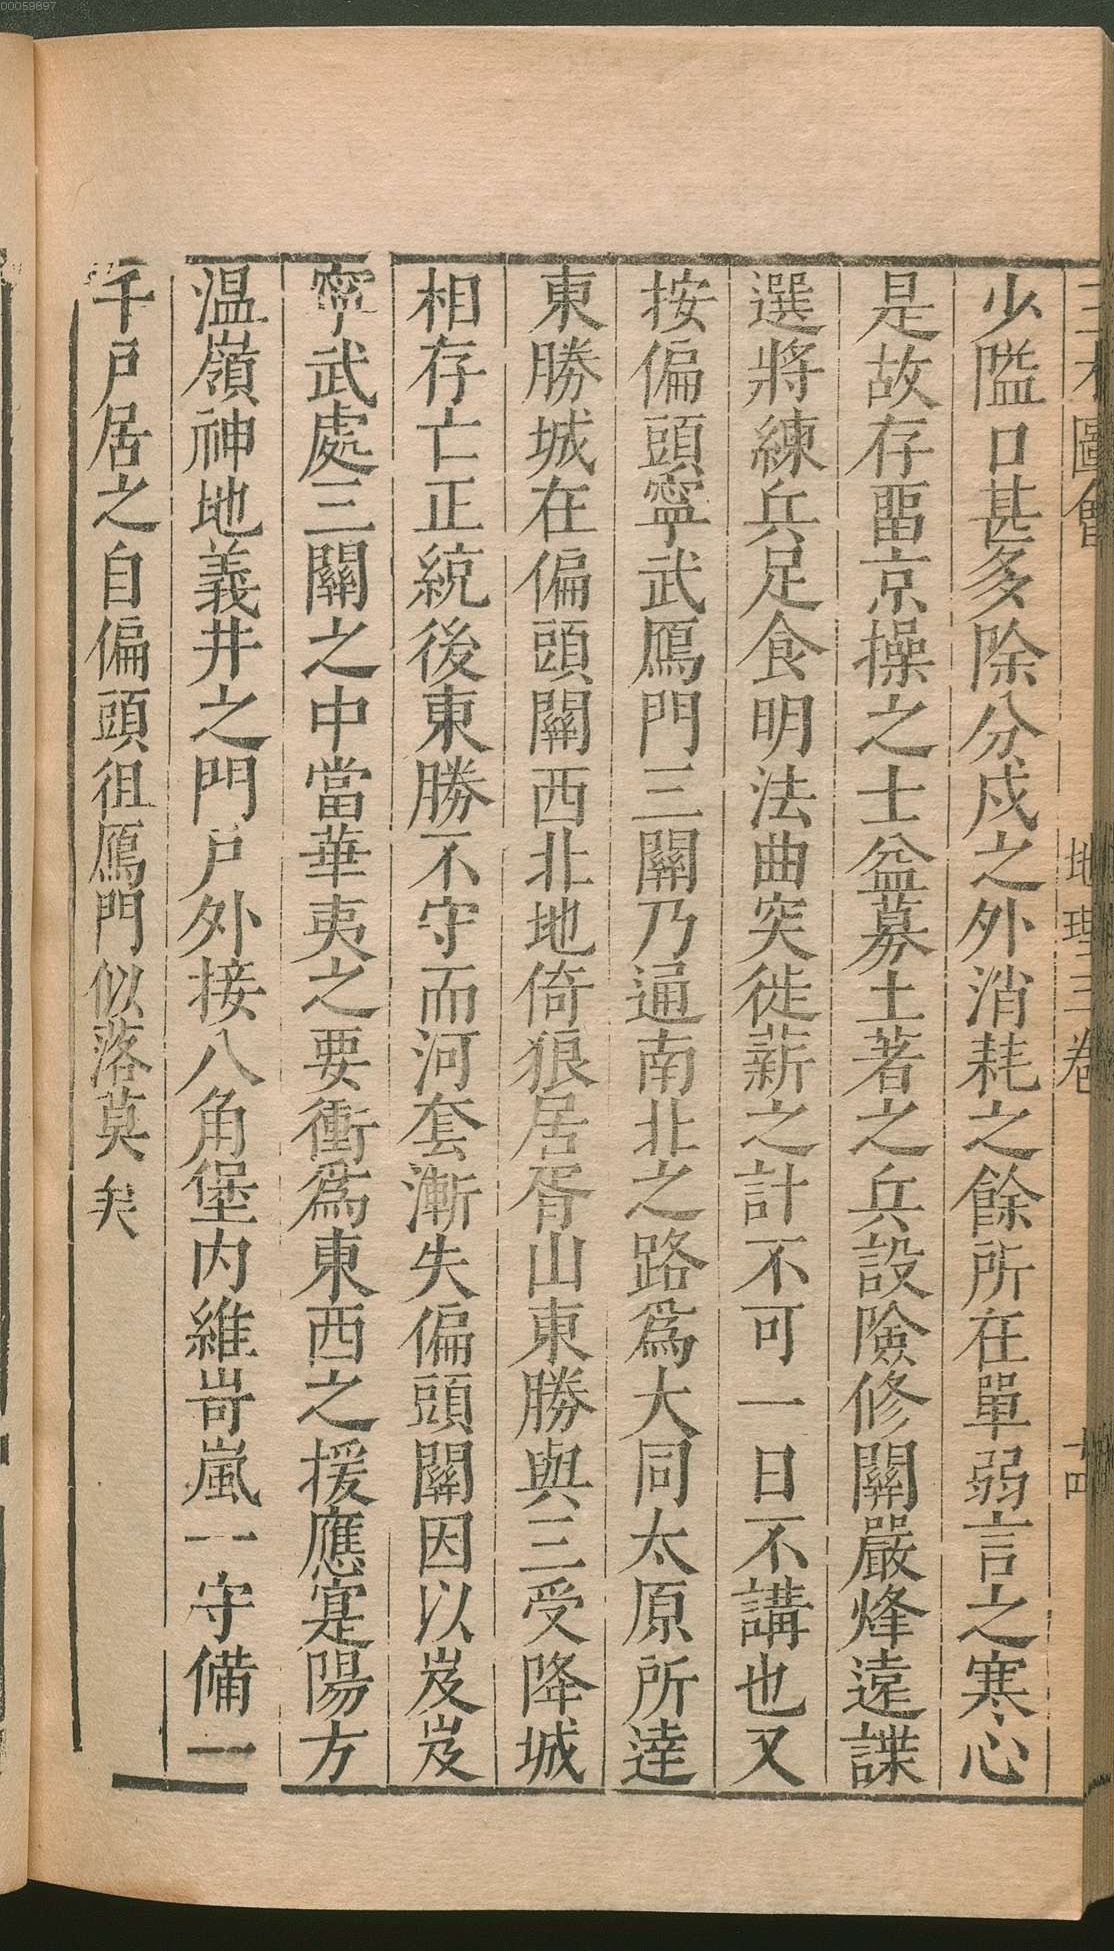 00059897
三才圖會 地理三卷 十四
少隘口甚多除分戍之外消耗之餘所在單弱言之寒心
是故存畱京操之士益募土著之兵設險修關嚴烽遠諜
選將練兵足食明法曲突徙薪之計不可一日不講也又
按偏頭寧武鴈門三關乃通南北之路爲大同太原所達
東勝城在偏頭關西北地倚狼居胥山東勝與三受降城
相存亡正統後東勝不守而河套漸失偏頭關因以岌岌
寧武處三關之中當華夷之要衝爲東西之援應寔陽方
温嶺神地義井之門戶外接八角堡内維岢嵐一守備一
千戶居之自偏頭徂鴈門似落莫矣